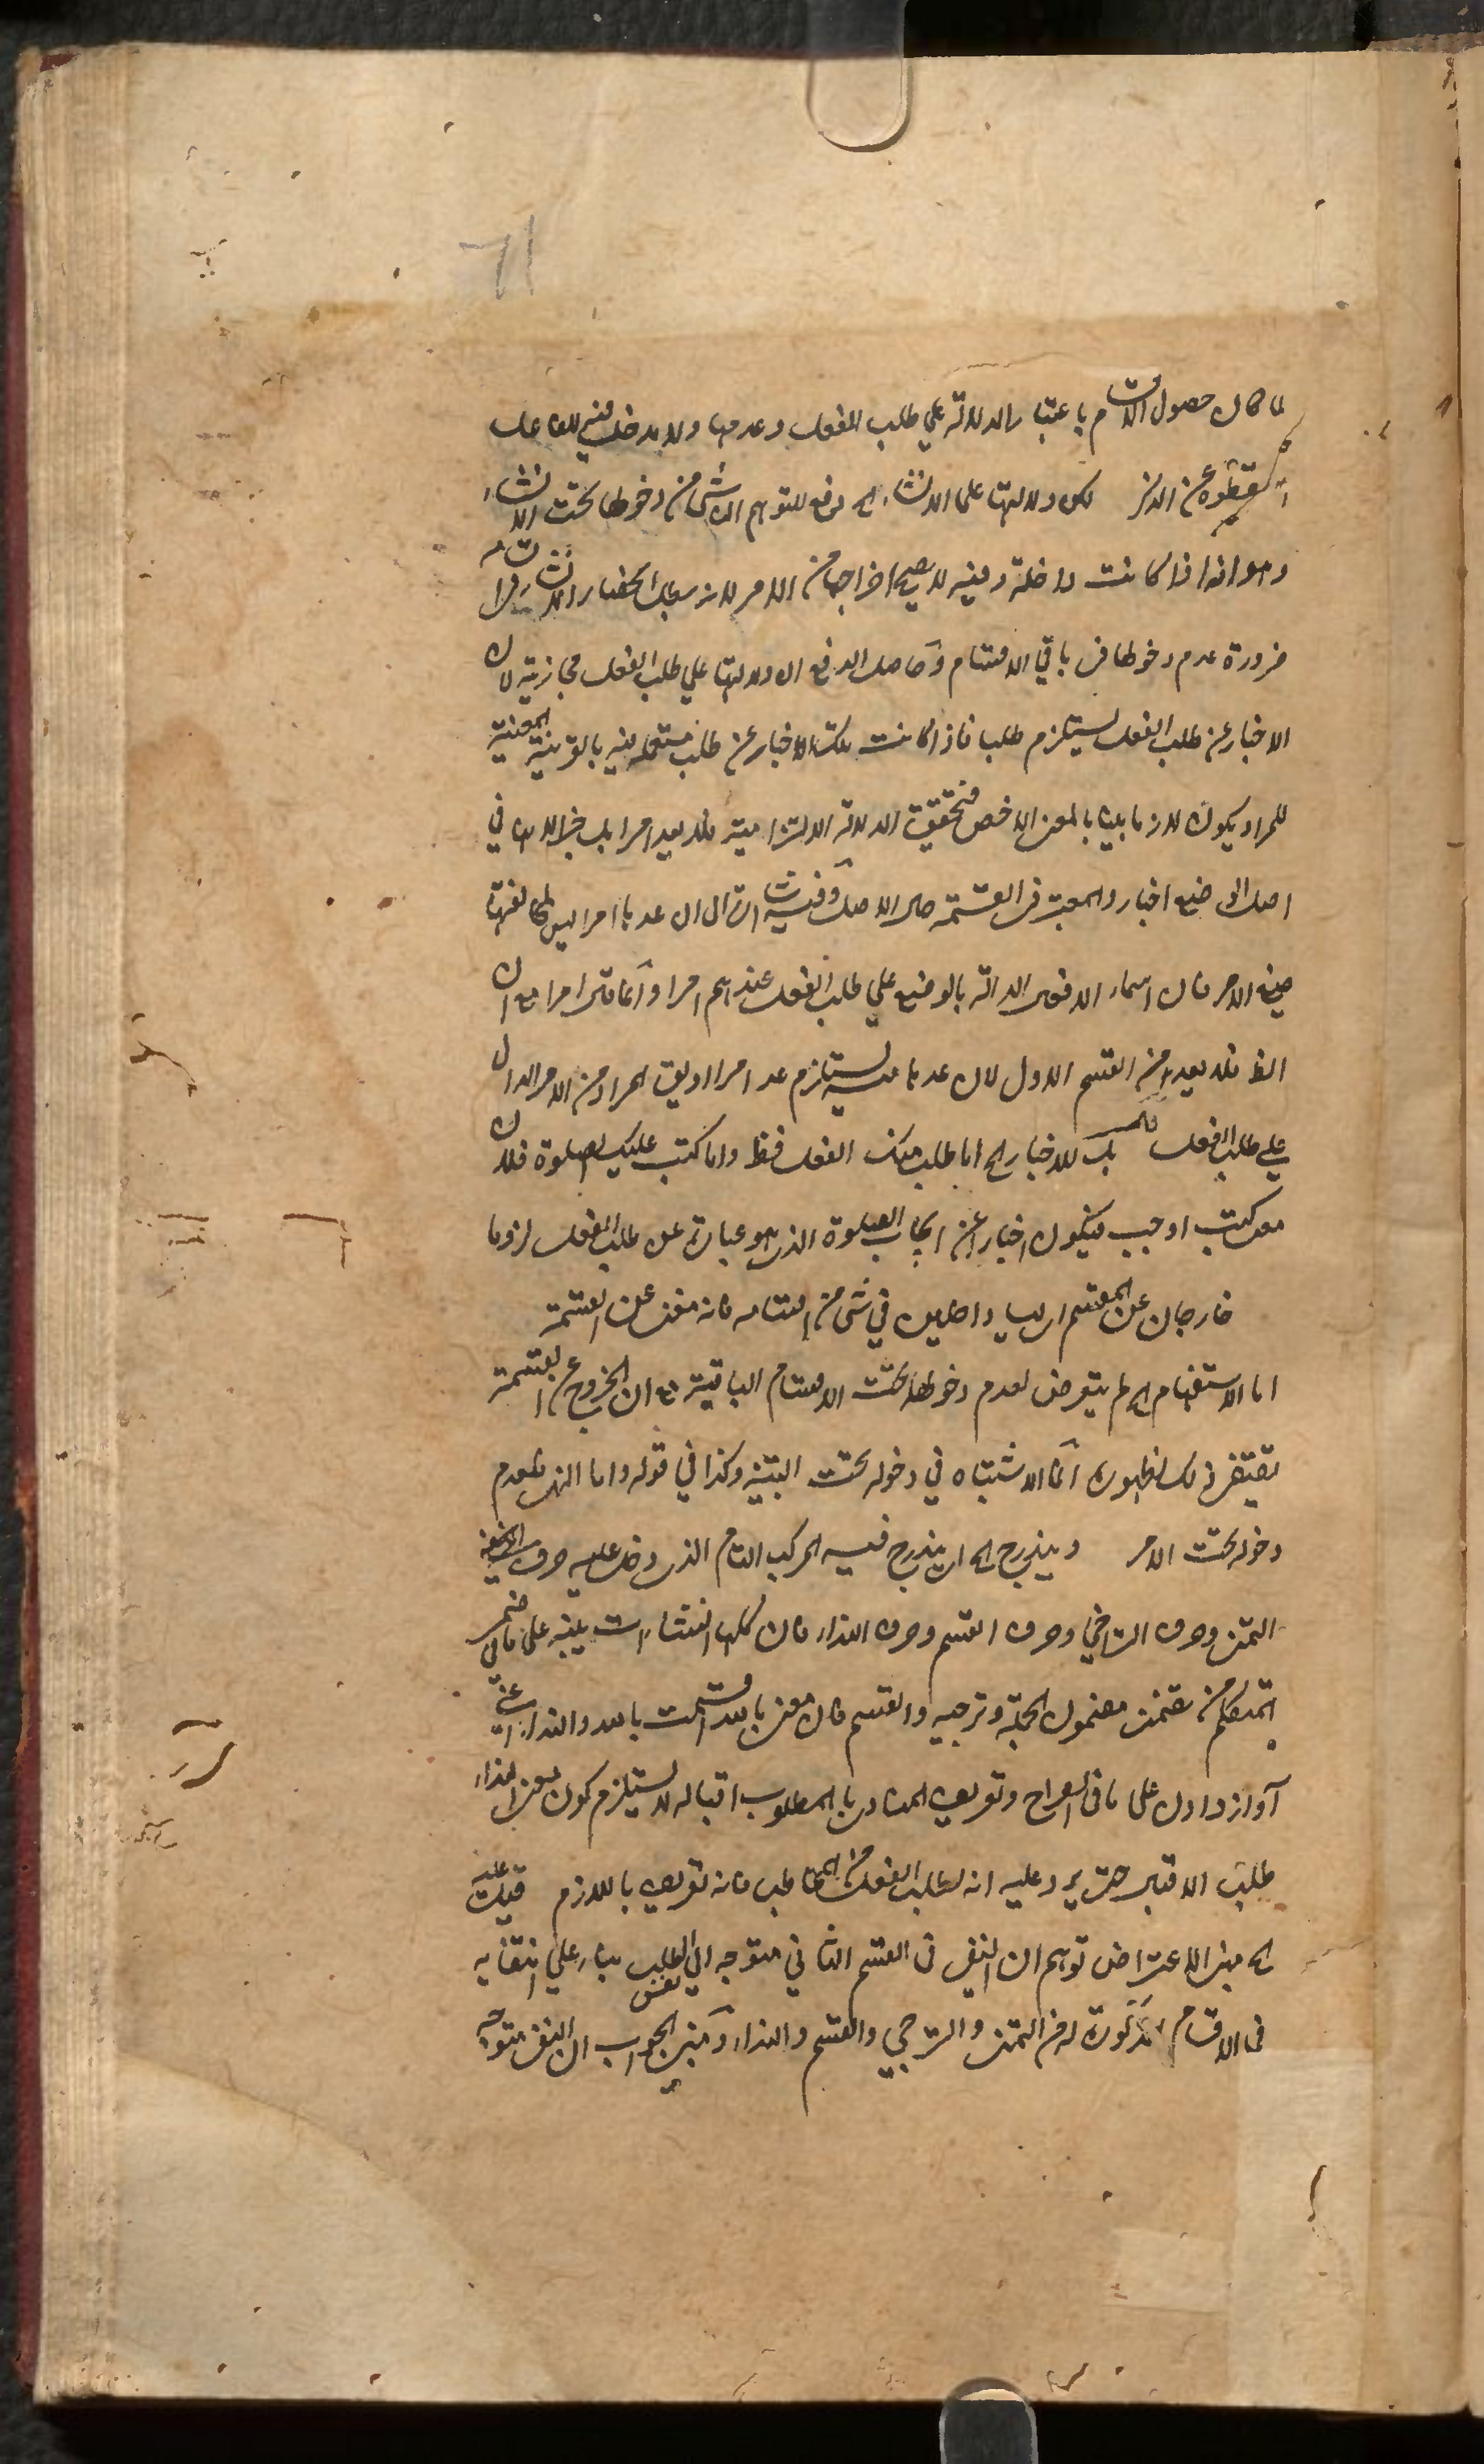 71
لما كان حصول الاقسام باعتبار الدلالة على طلب الفعل وعدمها ولا مدخل فيه للفاعل
اسقطوه عن الذكر لكن دلالتها على الانشاء الخ دفع للتوهم الناشى من دخولها تحت الانشاء
وهو انه اذا كانت داخلة فيه لا يصح اخراجها من الامر لانه يبطل انحصار الانشاء فى اقسامه
ضرورة عدم دخولها فى باقي الاقسام وحاصل الدفع ان دلالتها على طلب الفعل مجازية لان
الاخبار عن طلب الفعل يستلزم طلبا فاذا كانت تلك الاخبار عن طلب مستعملة فيه بالقرينة المعينة
للمراد يكون لازما بينا بالمعنى الاخص فتحقق الدلالة الالتزامية فلا يعد امرا بل خبرا لانها في
اصل الوضع اخبار والمعتبر فى القسمة حال الاصل وفيه اشارة الى ان عدها امرا ليس لمخالفتها
صيغ الامر فان اسماء الافعال الدالة بالوضع على طلب الفعل عندهم امرا
فلا يعد من القسم الاول لان عدها منه يستلزم عدها امرا او يقال المراد من الامر الدال
على طلب الفعل بل للاخبار الخ اما اطلب منك الفعل فظ واما كتب عليك الصلوة فلان
معنى كتب اوجب فيكون اخبارا عن ايجاب الصلوة الذى هو عبارة عن طلب الفعل لزوما
خارجان عن المقسم اى ليسا داخلين في شى من اقسامه فانه معنى عن القسمة
اما الاستفهام الخ لم يتعرض لعدم دخولها تحت الاقسام الباقية مع ان الخروج عن القسمة
يقتضى ذلك لظهوره انما الاشتباه في دخوله تحت التنبيه وكذا في قوله واما النهى فلعدم
دخوله تحت الامر ويندرج الخ اى يندرج فيه المركب التام الذى دخل عليه حرف
التمنى وحرف الترجي وحرف القسم وحرف النداء فان كلها انشاءات ينبه على ما فى ضمير
المتكلم من تمنى مضمون الجملة وترجيه والقسم فان معنى بالله اقسمت بالله والنداء
آواز دادن على ما فى الصراح وتعريف المنادى بالمطلوب اقباله لا يستلزم كون معنى النداء
طلب الاقبال حتى يرد عليه انه لطلب الفعل من المخاطب فانه تعريف باللازم قيل عليه
الخ مبنى الاعتراض توهم ان النفى فى القسم الثاني متوجه الى نفس الطلب بناء على انتفائه
فى الاقسام المذكورة له من التمنى والترجي والقسم والنداء ومبنى الجواب ان النفى متوجه